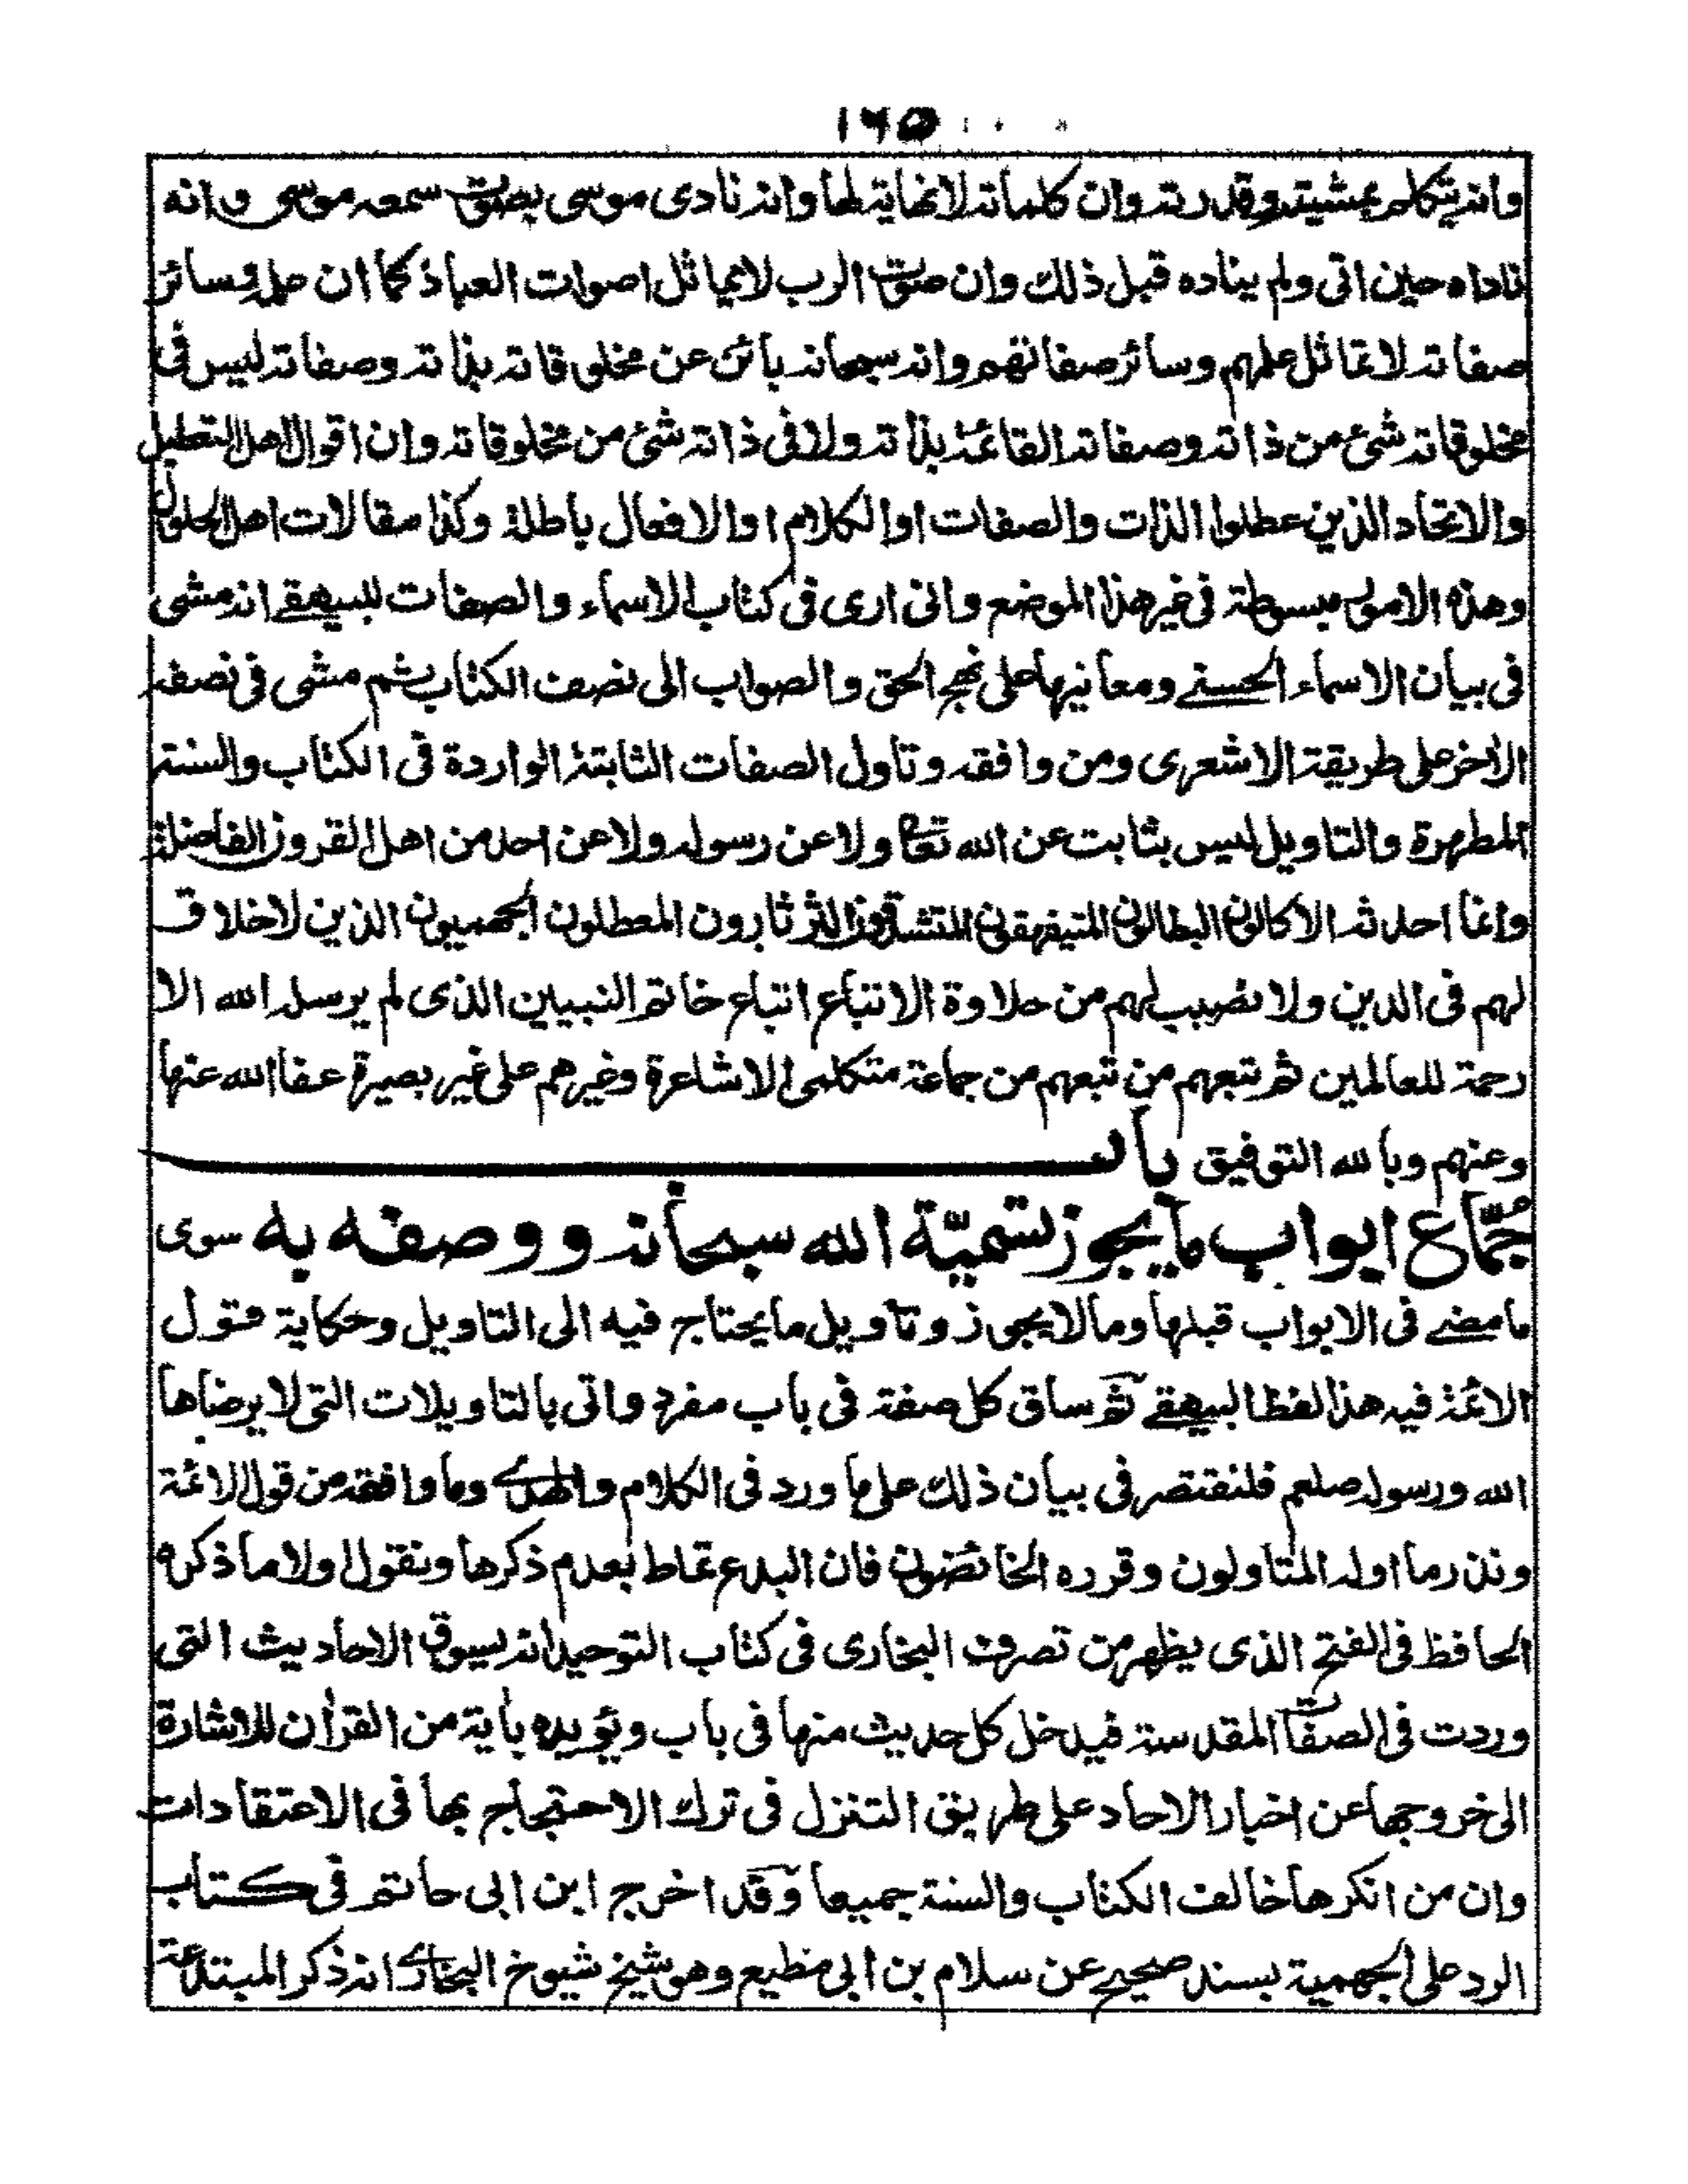 ١٦٥
وانه يتكلم بمشيته وقدرته وان كلماته لانهاية لها وانه نادى موسى بصوت سمعه موسى وانه
ناداه حين اتى ولم يناده قبل ذلك وان صوت الرب لايماثل اصوات العباد كما ان علمه وسائر
صفاته لاتماثل علمهم وسائر صفاتهم وانه سبحانه بائن عن مخلوقاته بذاته وصفاته ليس فى
مخلوقاته شئ من ذاته وصفاته القائمة بذاته ولا فى ذاته شئ من مخلوقاته وان اقوال اهل التعطيل
والاتحاد الذين عطلوا الذات والصفات او الكلام او الافعال باطلة وكذا مقالات اهل الحلول
وهذه الامور مبسوطة فى غير هذا الموضع وانى ارى فى كتاب الاسماء والصفات للبيهقے انه مشى
فى بيان الاسماء الحسنے ومعانيها على نهج الحق والصواب الى نصف الكتاب ثم مشى فى نصفه
الاخر على طريقة الاشعرى ومن وافقه وتاول الصفات الثابتة الواردة فى الكتاب والسنة
المطهرة والتاويل ليس بثابت عن الله تعا ولا عن رسوله ولا عن احد من اهل القرون الفاضلة
وانما احدثه الاكالون البطالون المتيفهقون المتشدقون الثرثارون المعطلون الجهميون الذين لاخلاق
لهم فى الدين ولا نصيب لهم من حلاوة الاتباع اتباع خاتم النبيين الذى لم يرسله الله الا
رحمة للعالمين ثم تبعهم من تبعهم من جماعة متكلمى الاشاعرة وغيرهم على غير بصيرة عفا الله عنها
وعنهم وبالله التوفيق باب
جُمّاع ابواب ما يجوز تسميّة الله سبحانه ووصفه به سوى
ما مضے فى الابواب قبلها وما لايجوز وتاويل ما يحتاج فيه الى التاويل وحكاية قول
الائمة فيه هذا لفظ البيهقے ثم ساق كل صفة فى باب مفرد واتى بالتاويلات التى لا يرضاها
الله ورسوله صلعم فلنقتصر فى بيان ذلك على ما ورد فى الكلام والهدے وما وافقه من قول الائمة
ونذر ما اوله المتاولون وقرره الخائضون فان البدع تماط بعدم ذكرها ونقول اولا ما ذكره
الحافظ فى الفتح الذى يظهر من تصرف البخارى فى كتاب التوحيد انه يسوق الاحاديث التى
وردت فى الصفات المقدسة فيدخل كل حديث منها فى باب ويؤيده باية من القران للاشارة
الى خروجها عن اخبار الاحاد على طريق التنزل فى ترك الاحتجاج بها فى الاعتقادات
وان من انكرها خالف الكتاب والسنة جميعا وقد اخرج ابن ابى حاتم فى كتاب
الرد على الجهمية بسند صحيح عن سلام بن ابى مطيع وهو شيخ شيوخ البخارے انه ذكر المبتدعة